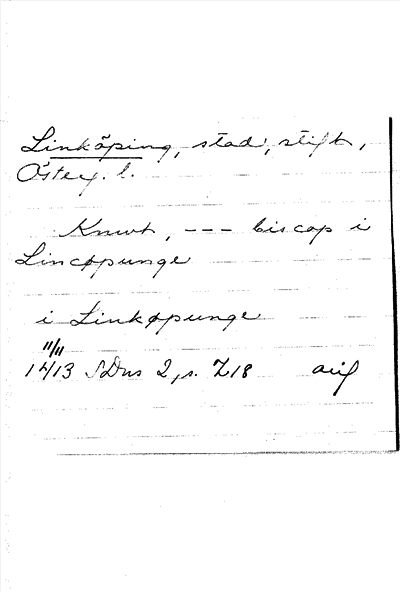 Linköping, stad, stift,
Österg. l.
Knwt, --- biscop i
Lincøpunge
i Linkøpunge
11/11
1413 SDns 2, s. 718 avs